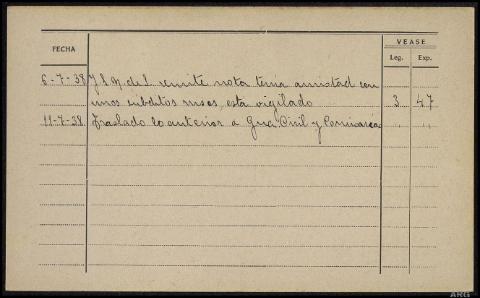 VEASE
FECHA
Leg. Exp.
6-7-38 J S M de S. remite nota tenia amistad con
unos subditos rusos, esta vigilado 3 47
11-7-38 Traslado lo anterior a Gua Civil y Comisaria " "
ARG